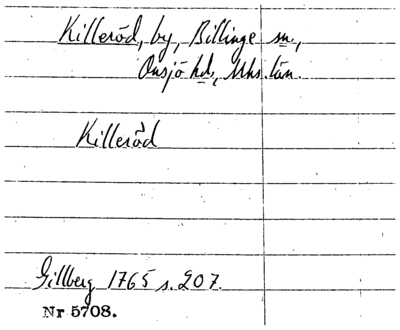 Killeröd, by, Billinge sn,
Onsjö hd, Mhs. län.
Killeröd
Gillberg 1765 s. 207.
Nr 5708.